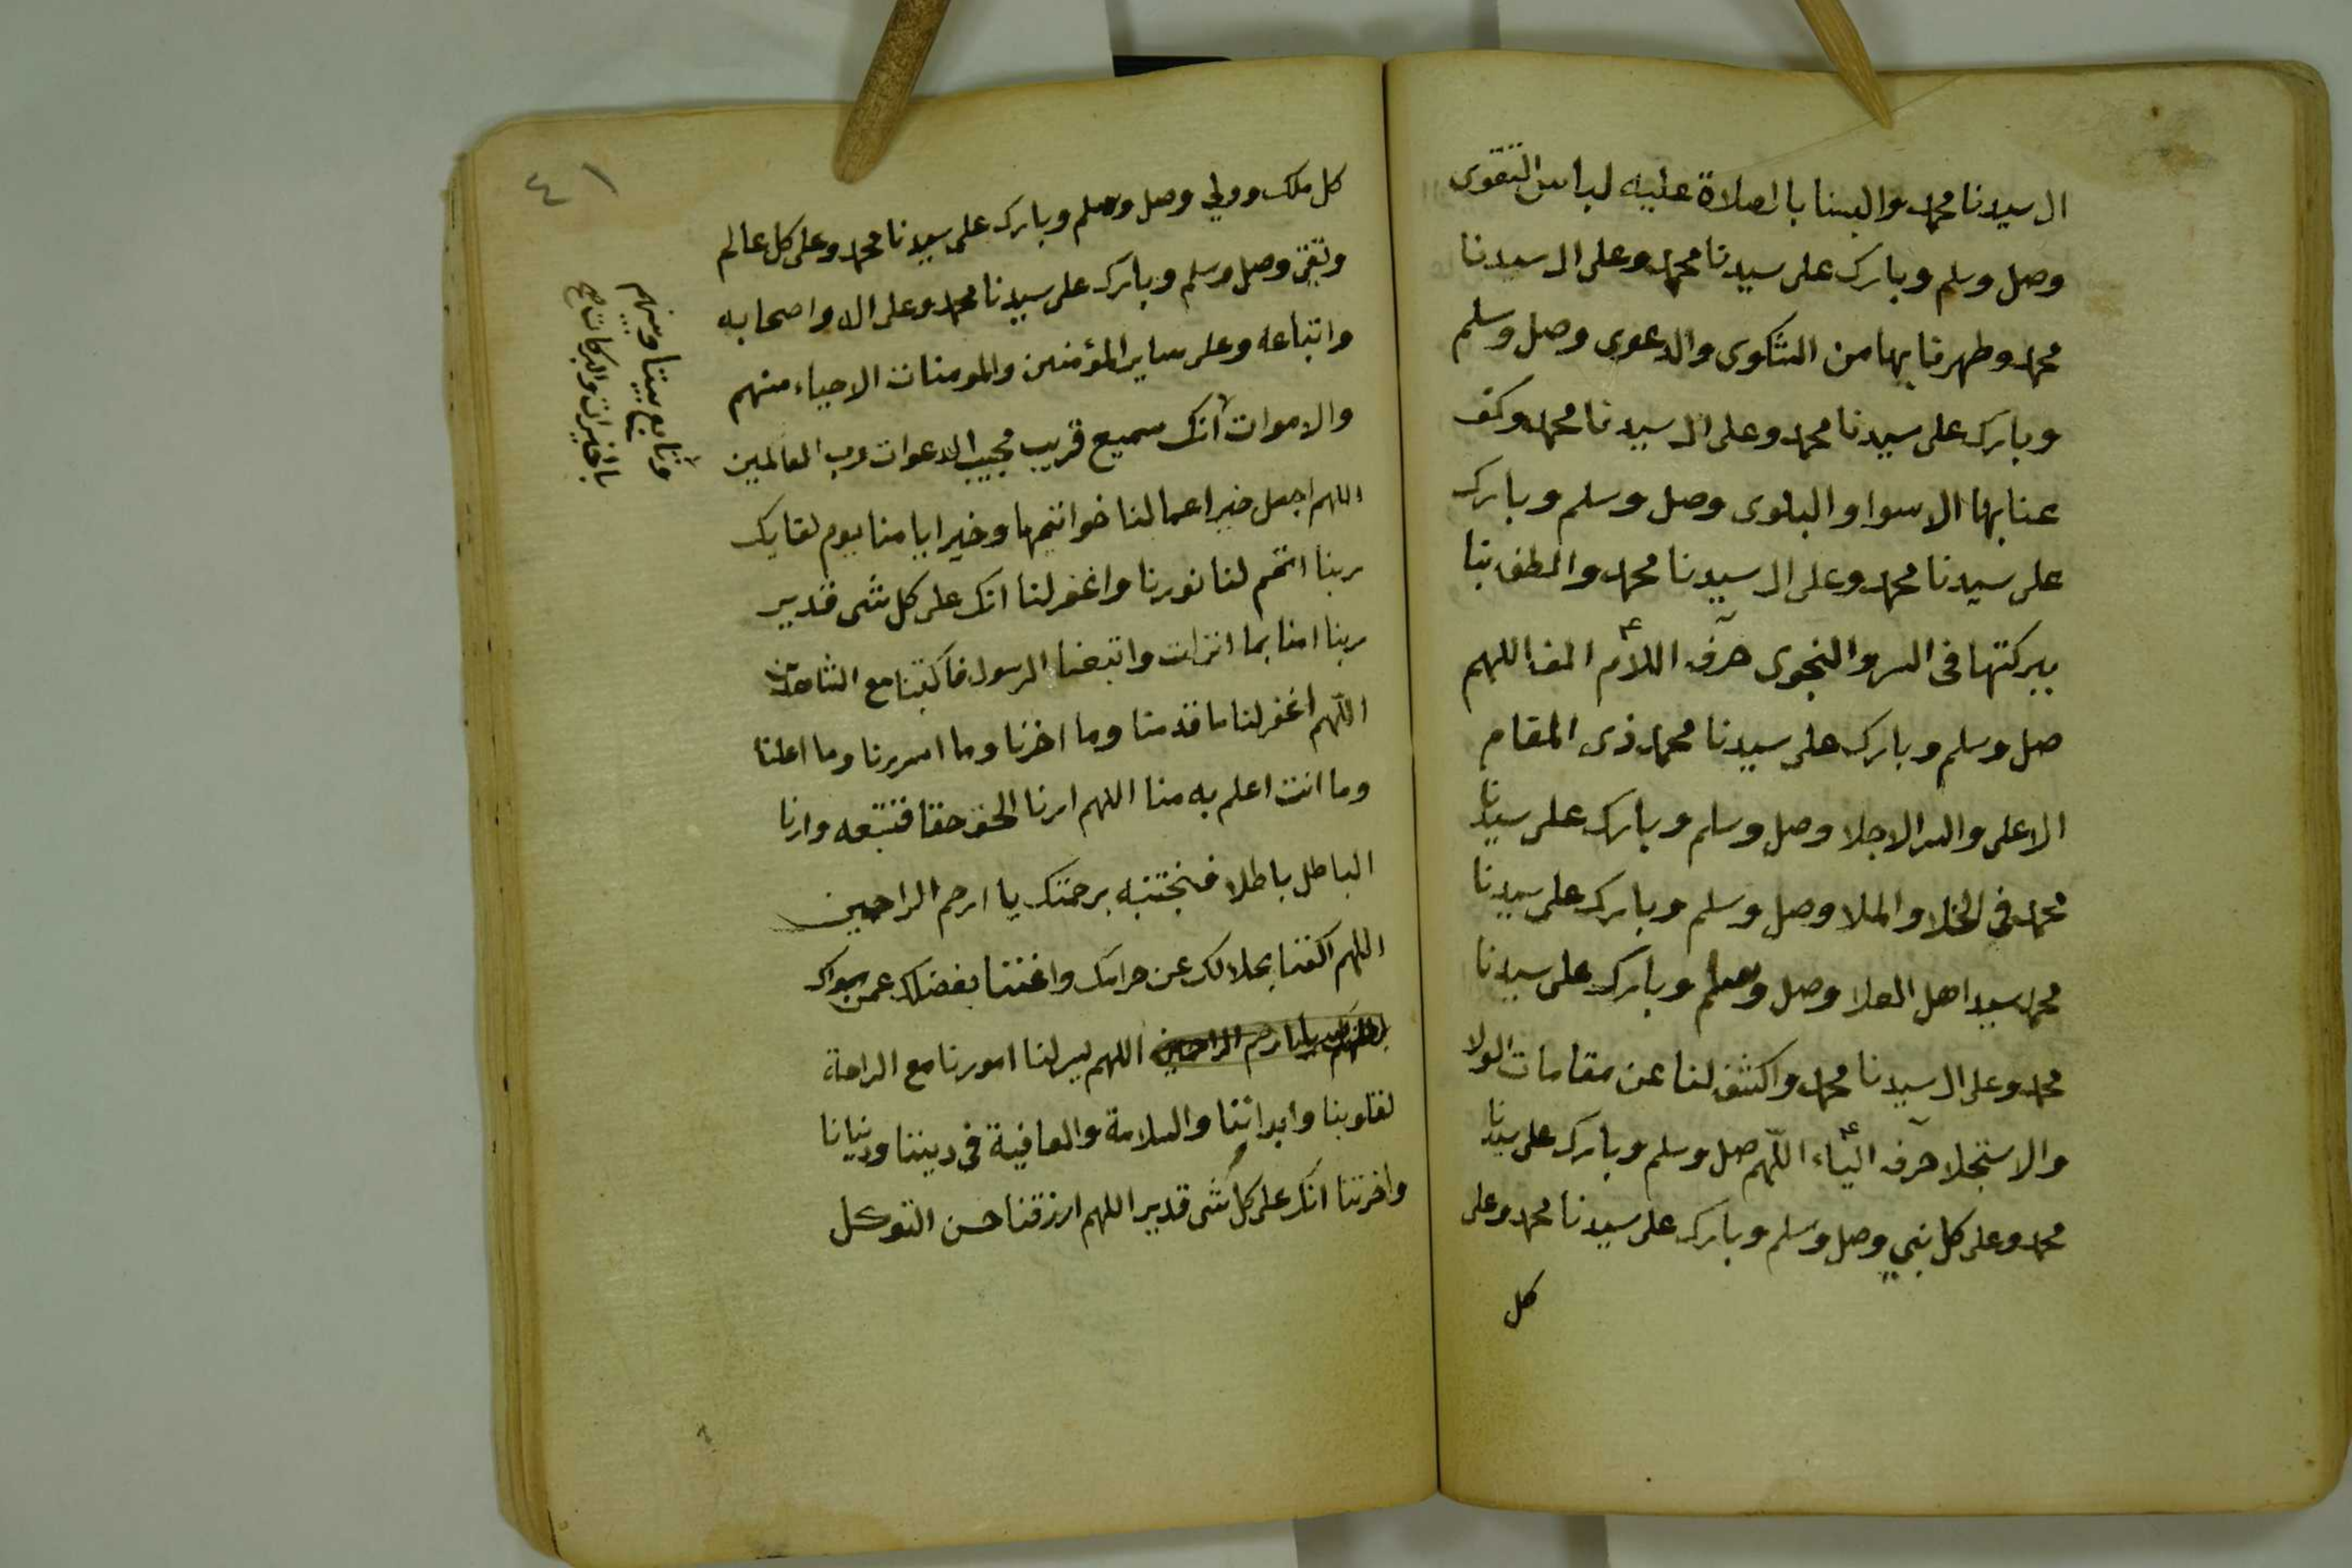 ال سيدنا محمد والبسنا بالصلاة عليه لباس التقوى
وصل وسلم وبارك على سيدنا محمد وعلى ال سيدنا
محمد وطهرنا بها من الشكوى والدعوى وصل وسلم
وبارك على سيدنا محمد وعلى ال سيدنا محمد وكف
عنا بها الاسوا والبلوى وصل وسلم وبارك
على سيدنا محمد وعلى ال سيدنا محمد والطف بنا
ببركتها فى السر والنجوى حرف اللام الف اللهم
صل وسلم وبارك على سيدنا محمد ذى المقام
الاعلى والسر الاجلا وصل وسلم وبارك على سيدنا
محمد فى الخلا والملا وصل وسلم وبارك على سيدنا
محمد سيد اهل العلا وصل وسلم وبارك على سيدنا
محمد وعلى ال سيدنا محمد واكشف لنا عن مقامات الولا
والاستجلا حرف الياء اللهم صل وسلم وبارك على سيدنا
محمد وعلى كل نبي وصل وسلم وبارك على سيدنا محمد وعلى
كل
٤١
كل ملك وولي وصل وسلم وبارك على سيدنا محمد وعلى كل عالم
وتقى وصل وسلم وبارك على سيدنا محمد وعلى اله واصحابه
واتباعه وعلى ساير المؤمنين والمومنات الاحياء منهم
والاموات انك سميع قريب مجيب الدعوات رب العالمين
اللهم اجعل خير اعمالنا خواتيمها وخير ايامنا يوم لقايك
ربنا اتمم لنا نورنا واغفر لنا انك على كل شى قدير
ربنا امنا بما انزلت واتبعنا الرسول فاكتبنا مع الشاهدين
اللهم اغفر لنا ما قدمنا وما اخرنا وما اسررنا وما اعلنا
وما انت اعلم به منا اللهم ارنا الحق حقا فنتبعه وارنا
الباطل باطلا فنجتنبه برحمتك يا ارحم الراحمين
اللهم اكفنا بحلالك عن حرامك واغننا بفضلك عمن سواك
يا ارحم الراحمين اللهم يسر لنا امورنا مع الراحة
لقلوبنا وابداننا والسلامة والعافية فى ديننا ودنيانا
واخرتنا انك على كل شى قدير اللهم ارزقنا حسن التوكل
وتابع بيننا وبينهم
بالخيرات والبركات